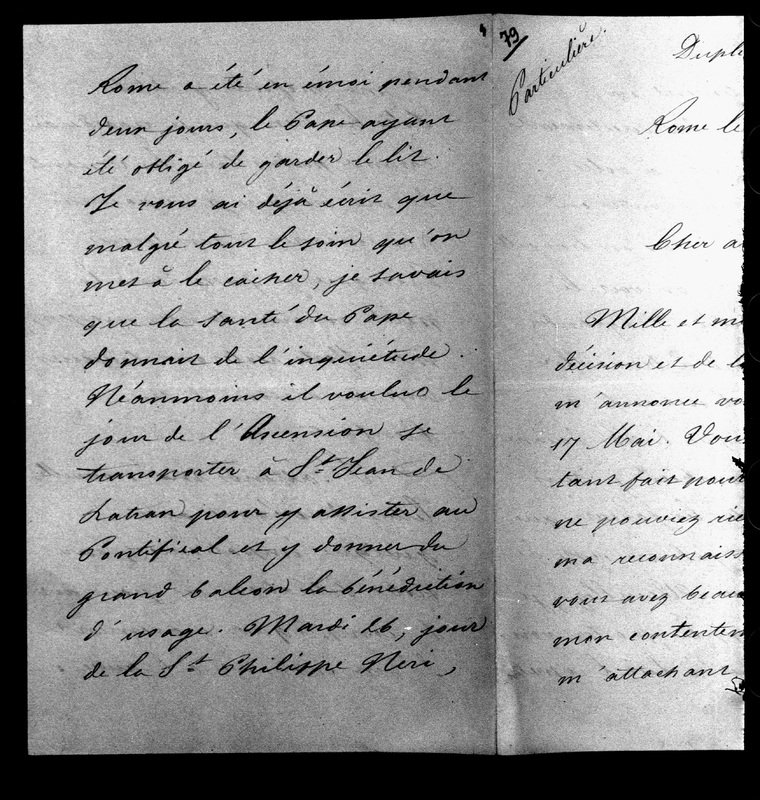 Rome a été en émoi pendant
deux jours, le Pape ayant
été obligé de garder le lit.
Je vous ai déjà écrit que
malgré tout le soin qu'on
met à le cacher, je savais
que la santé du Pape
donnait de l'inquiétude.
Néanmoins il voulut le
jour de l'Ascension se
transporter à St Jean de
Latran pour y assister au
Pontifical et y donner du
grand balcon la bénédiction
d'usage. Mardi 26, jour
de la St Philippe Neri,
79
Particulière.
Rome le
Cher
Mille et
décision et de
m'annonce
17 Mai.
tant fait pour
ne pouviez
ma
vous avez
mon
m'attachant